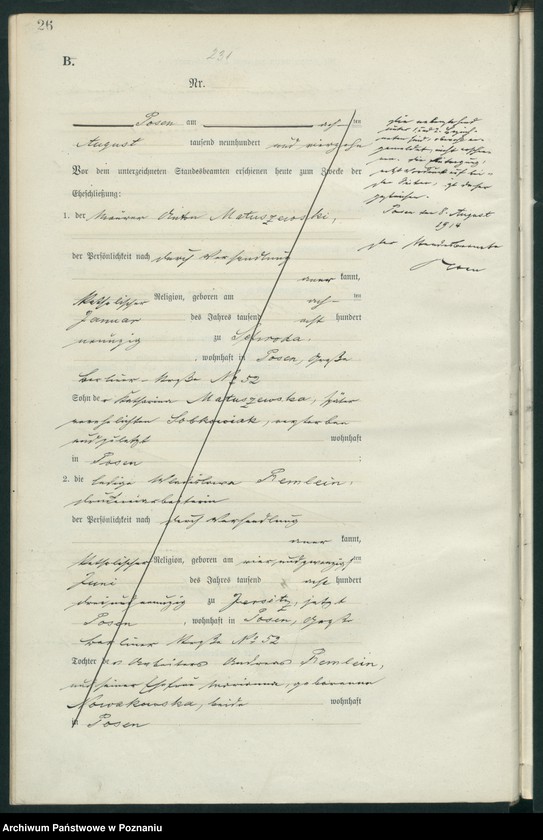 26
231
B.
Nr.
Posen am ach ten
August tausend neunhundert und vierzehn
Vor dem unterzeichneten Standesbeamten erschienen heute zum Zwecke der
Eheschließung:
1. der Maurer Anton Matuszewski,
der Persönlichkeit nach durch Verhandlung
aner kannt,
katholischer Religion, geboren am ach ten
Januar des Jahres tausend acht hundert
neunzig zu Schroda
, wohnhaft in Posen, Große
Berliner-Straße No 52
Sohn der Katharina Matuszewska, später
verehelichten Sobkowiak, verstorben
und zuletzt wohnhaft
in Posen ;
2. die ledige Wladislawa Remlein,
der Persönlichkeit nach durch Verhandlung
aner kannt,
katholischer Religion, geboren am vierundzwanzigsten
Juni des Jahres tausend acht hundert
dreiundneunzig zu Jersitz, jetzt
Posen , wohnhaft in Posen, Große
Berliner Straße No 52
Tochter des Arbeiters Andreas Remlein,
und seiner Ehefrau Marianna, geborenen
Nowakowska, beide wohnhaft
in Posen
Die
unter 1 und 2
nicht erschie-
nen. Die Eintragung
ist daher
gestrichen.
Posen den 8. August
1914
Der Standesbeamte
Archiwum Państwowe w Poznaniu